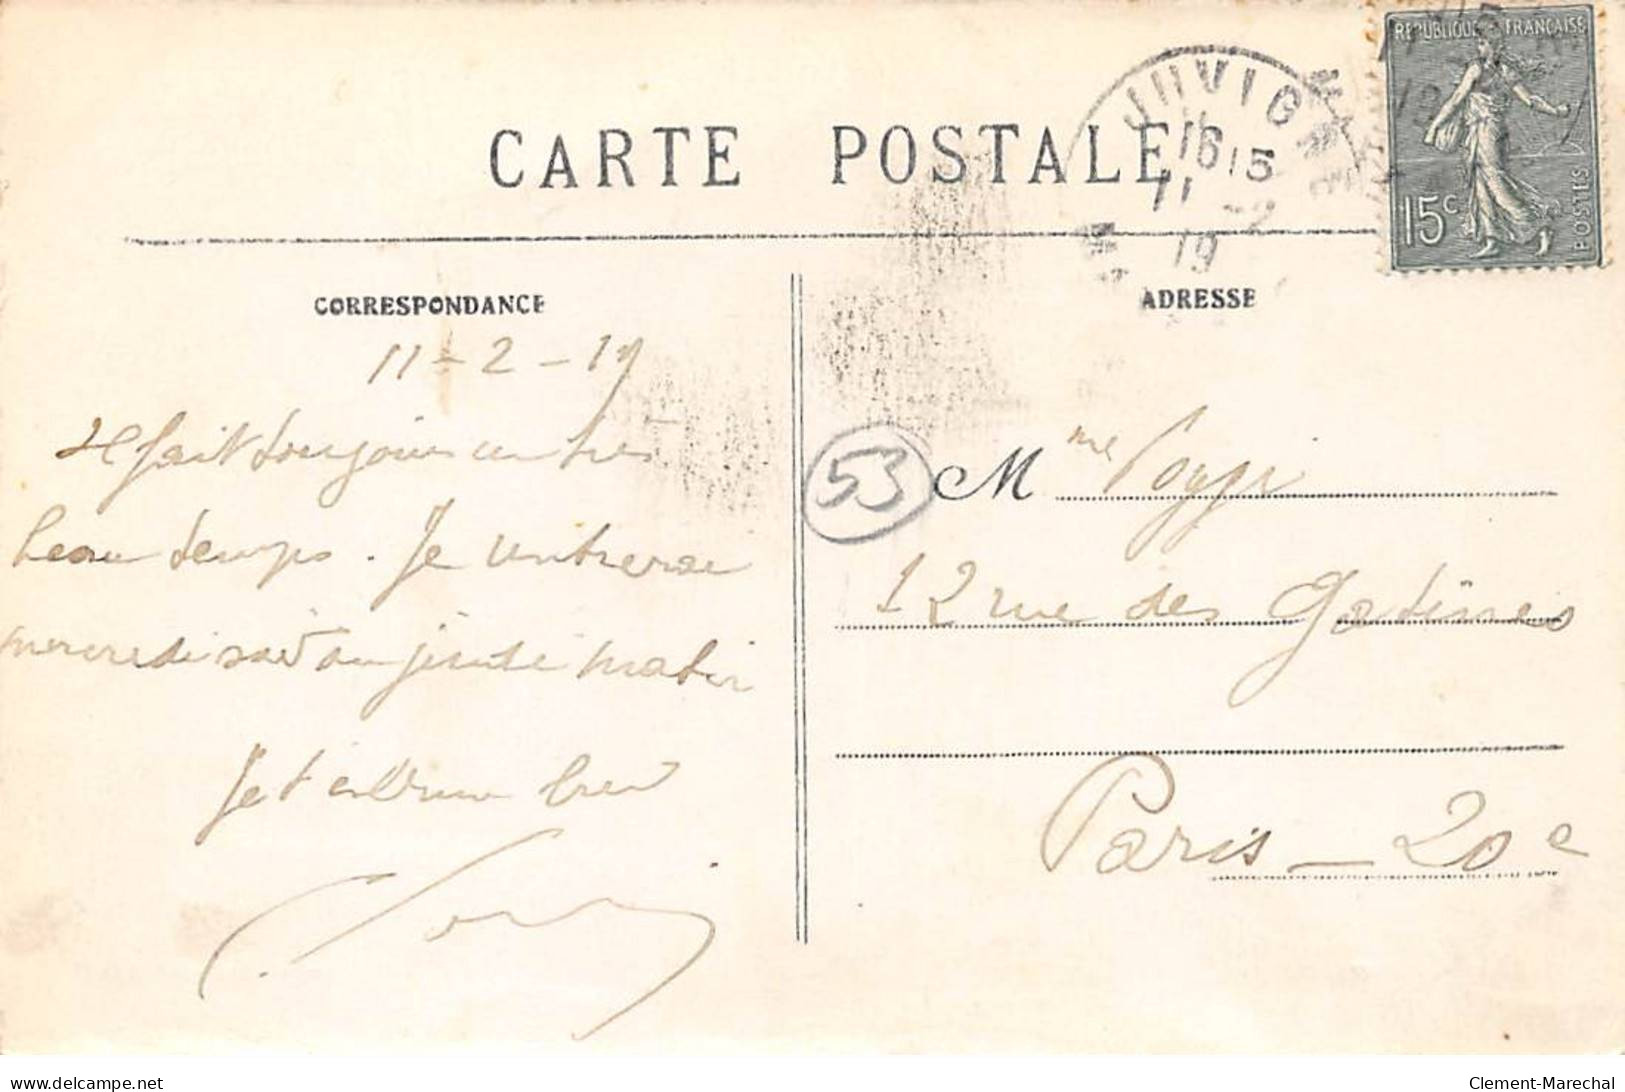 CARTE POSTALE
JUVIGNE
16 15
11 -2
19
REPUBLIQUE FRANÇAISE
15c
POSTES
CORRESPONDANCE
11-2-19
Il fait toujours un très
beau temps. Je rentrerai
mercredi soir ou jeudi matin
Je t'embrasse bien
ADRESSE
53
Mme Poggi
12 rue des Gatines
Paris - 20e
delcampe.net
Clement-Marechal